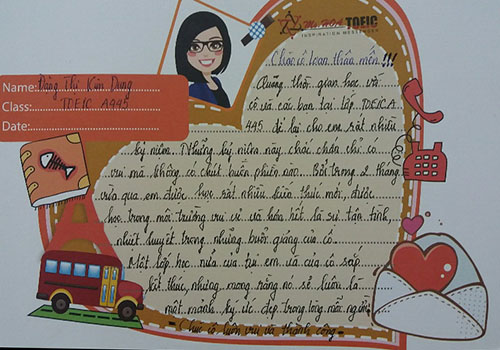 Ms HOA TOEIC
INSPIRATION MESSENGER
Name: Đặng Thị Kim Dung
Class: TOEIC A445
Date:
Chào cô Loan thân mến !!!
Quãng thời gian học với
cô và các bạn tại lớp TOEIC A
445 để lại cho em rất nhiều
kỷ niệm. Những kỷ niệm này chắc chắn chỉ có
vui mà không có chút buồn phiền nào... Bởi trong 2 tháng
vừa qua em được học rất nhiều kiến thức mới, được
học trong môi trường vui vẻ và hơn hết là sự tận tình,
nhiệt huyết trong những buổi giảng của cô.
Một lớp học nữa của tụi em và cô sắp
kết thúc, nhưng mong rằng nó sẽ luôn là
một mảnh ký ức đẹp trong lòng mỗi người
- Chúc cô luôn vui và thành công -